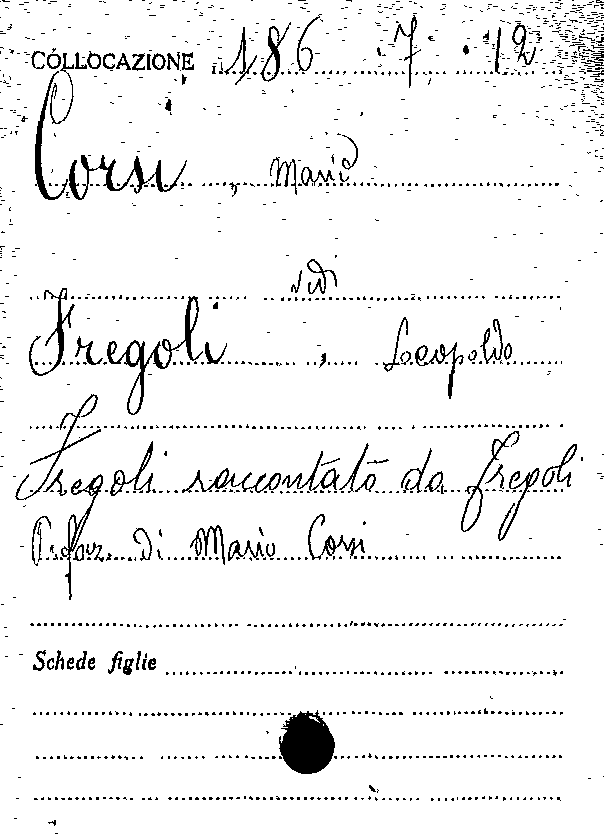 COLLOCAZIONE 186.7.12
Corsi, Mario
vidi
Fregoli, Leopoldo
Fregoli raccontato da Fregoli
Prefaz. di Mario Corsi
Schede figlie